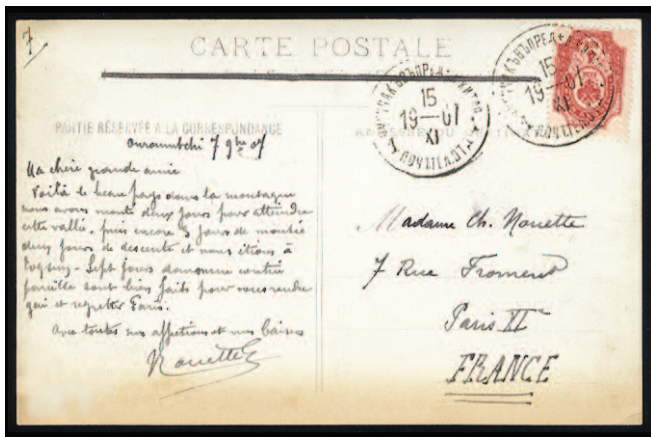 7
CARTE POSTALE
PARTIE RÉSERVÉE A LA CORRESPONDANCE
Ouroumtchi 7 9bre 07
Ma chère grande amie
Voilà le beau pays dans la montagne
nous avons monté deux jours pour attendre
cette vallée, puis encore 3 jours de montée
deux jours de descente et nous étions à
Sept jours
sont bien faits pour vous rendre
gai et regretter Paris.
Avec toutes mes affections et mes baisers
Nouette
Madame Ch. Nouette
7 Rue Froment
Paris II
FRANCE
15
19—07
XI
15
19—07
XI